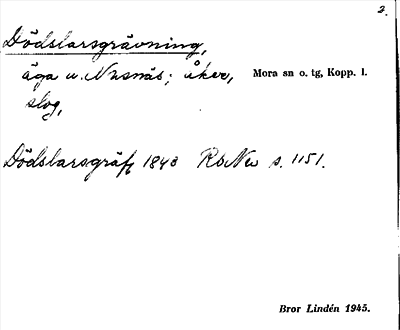 2.
Dödslarsgrävning,
äga u. Nusnäs; åker, Mora sn o. tg, Kopp. l.
slog,
Dödslarsgräf 1843 RbNw s. 1151.
Bror Lindén 1945.